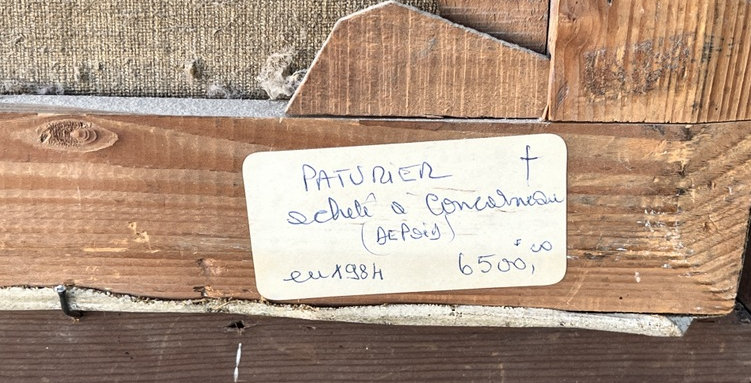 PATURIER †
acheté à Concarneau
(DEPOIS)
en 1984 6500,F00